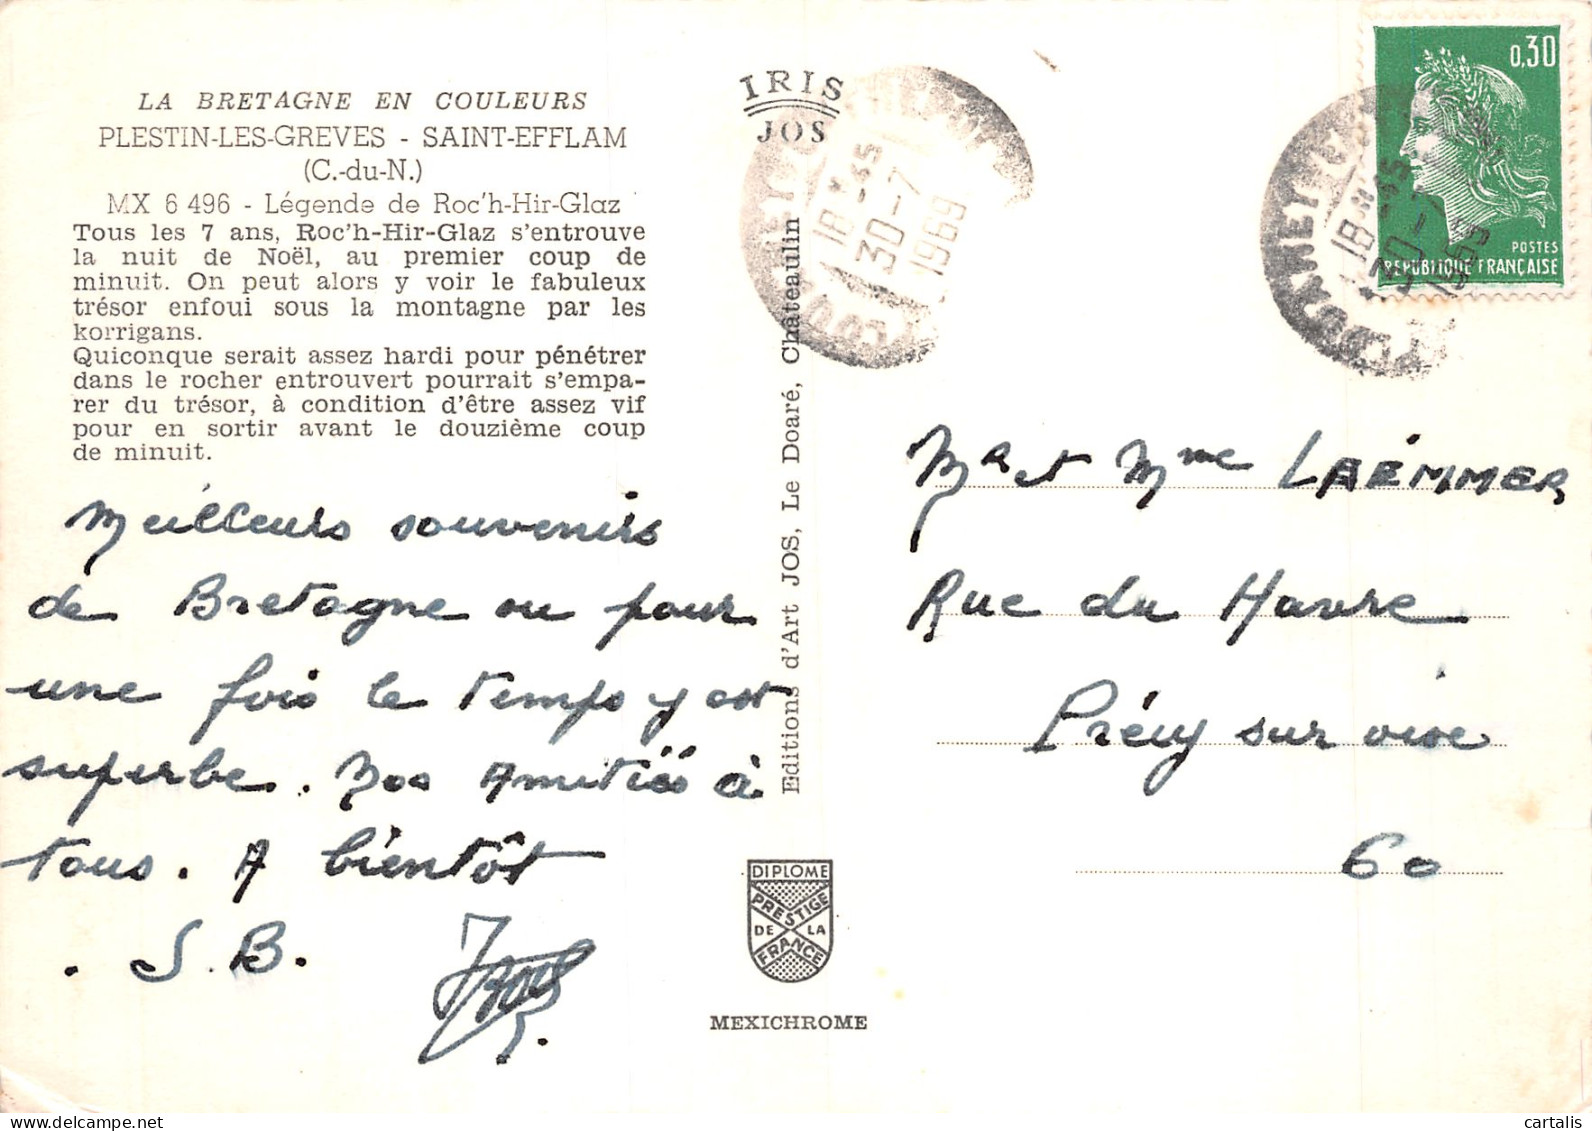 LA BRETAGNE EN COULEURS
PLESTIN-LES-GREVES - SAINT-EFFLAM
(C.-du-N.)
MX 6 496 - Légende de Roc'h-Hir-Glaz
Tous les 7 ans, Roc'h-Hir-Glaz s'entrouve
la nuit de Noël, au premier coup de
minuit. On peut alors y voir le fabuleux
trésor enfoui sous la montagne par les
korrigans.
Quiconque serait assez hardi pour pénétrer
dans le rocher entrouvert pourrait s'empa-
rer du trésor, à condition d'être assez vif
pour en sortir avant le douzième coup
de minuit.
Meilleurs souvenirs
de Bretagne ou pour
une fois le temps y est
superbe. Nos Amitiés à
tous. A bientôt
. S. B.
IRIS
JOS
Editions d'Art JOS, Le Doaré, Châteaulin
DIPLOME
PRESTIGE
DE LA
FRANCE
MEXICHROME
18 H 45
30-7
1969
18 H 45
30-7
1969
0,30
POSTES
REPUBLIQUE FRANÇAISE
Mr et Mme LAEMMER
Rue du Havre
Précy sur oise
60
cartalis